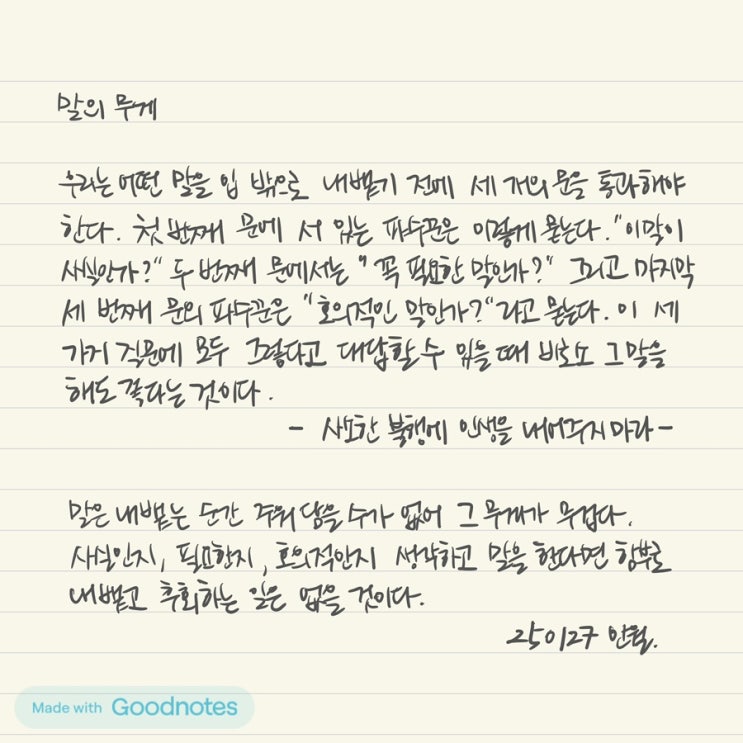 말의 무게
우리는 어떤 말을 입 밖으로 내뱉기 전에 세 개의 문을 통과해야
한다. 첫 번째 문에 서 있는 파수꾼은 이렇게 묻는다. "이 말이
사실인가?" 두 번째 문에서는 "꼭 필요한 말인가?" 그리고 마지막
세 번째 문의 파수꾼은 "호의적인 말인가?"라고 묻는다. 이 세
가지 질문에 모두 그렇다고 대답할 수 있을 때 비로소 그 말을
해도 좋다는 것이다.
- 사소한 불행에 인생을 내어주지 마라 -
말은 내뱉는 순간 주워 담을 수가 없어 그 무게가 무겁다.
사실인지, 필요한지, 호의적인지 생각하고 말을 한다면 함부로
내뱉고 후회하는 일은 없을 것이다.
250127
Made with Goodnotes